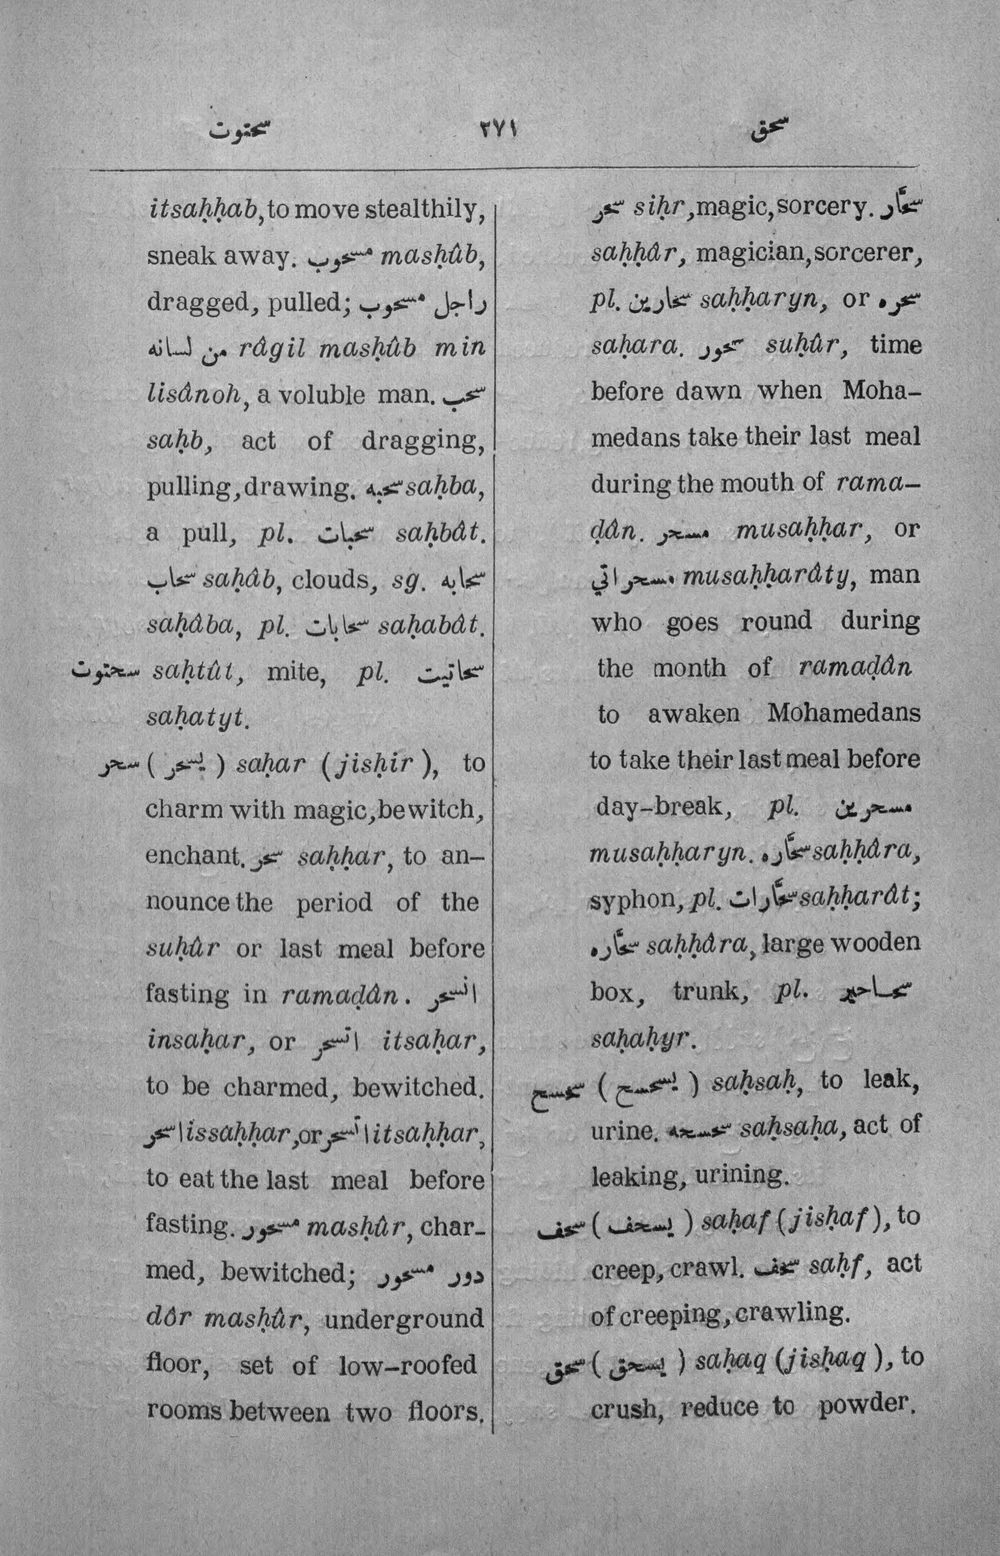 سحتوت ٢٧١ سحق
itsaḥḥab, to move stealthily,
sneak away. مسحوب masḥûb,
dragged, pulled; راجل مسحوب
من لسانه râgil masḥûb min
lisânoh, a voluble man. سحب
saḥb, act of dragging,
pulling, drawing. سحبه saḥba,
a pull, pl. سحبات saḥbât.
سحاب saḥâb, clouds, sg. سحابه
saḥâba, pl. سحابات saḥabât.
سحتوت saḥtût, mite, pl. سحاتيت
saḥatyt.
سحر ( يسحر ) saḥar (jisḥir), to
charm with magic, bewitch,
enchant. سحر saḥḥar, to an-
nounce the period of the
suḥûr or last meal before
fasting in ramaḍân. انسحر
insaḥar, or اتسحر itsaḥar,
to be charmed, bewitched.
اسحر issaḥḥar, or اتسحر itsaḥḥar,
to eat the last meal before
fasting. مسحور masḥûr, char-
med, bewitched; دور مسحور
dôr masḥûr, underground
floor, set of low-roofed
rooms between two floors.
سحر siḥr, magic, sorcery. سحَّار
saḥḥâr, magician, sorcerer,
pl. سحارين saḥḥaryn, or سحره
saḥara. سحور suḥûr, time
before dawn when Moha-
medans take their last meal
during the mouth of rama-
ḍân. مسحر musaḥḥar, or
مسحراتي musaḥḥarâty, man
who goes round during
the month of ramaḍân
to awaken Mohamedans
to take their last meal before
day-break, pl. مسحرين
musaḥḥaryn. سحَّاره saḥḥâra,
syphon, pl. سحَّارات saḥḥarât;
سحَّاره saḥḥâra, large wooden
box, trunk, pl. سحاحير
saḥaḥyr.
سحسح ( يسحسح ) saḥsaḥ, to leak,
urine. سحسحه saḥsaḥa, act of
leaking, urining.
سحف ( يسحف ) saḥaf (jisḥaf), to
creep, crawl. سحف saḥf, act
of creeping, crawling.
سحق ( يسحق ) saḥaq (jisḥaq), to
crush, reduce to powder.